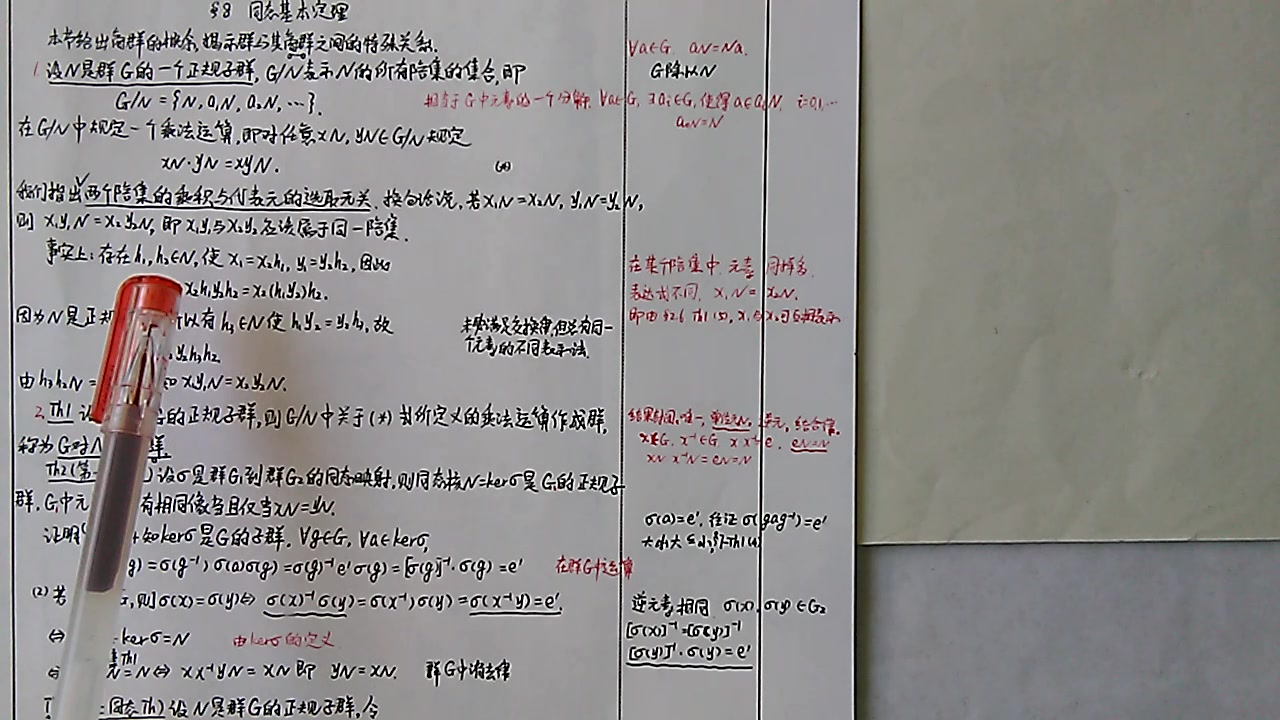 §8 同态基本定理
本节给出商群的概念,揭示群与其商群之间的特殊关系.
1. 设N是群G的一个正规子群, G/N表示N的所有陪集的集合,即
G/N = {N, a₁N, a₂N, …}.
在G/N中规定一个乘法运算,即对任意xN, yN∈G/N规定
xN·yN = xyN. (*)
我们指出两个陪集的乘积与代表元的选取无关. 换句话说,若x₁N=x₂N, y₁N=y₂N,
则 x₁y₁N = x₂y₂N, 即x₁y₁与x₂y₂应该属于同一陪集.
事实上:存在h₁,h₂∈N,使 x₁=x₂h₁, y₁=y₂h₂,因此
x₂h₁y₂h₂ = x₂(h₁y₂)h₂.
因为N是正规 以有h₃∈N使 h₁y₂=y₂h₃, 故
y₂h₃h₂
未必满足交换律,但总有同一
个元素的不同表示法.
由h₃h₂N = 知 x₁y₁N = x₂y₂N.
2. Th1 设 的正规子群,则G/N中关于(*)式所定义的乘法运算作成群,
称为G对N 群.
Th2(第 )设σ是群G₁到群G₂的同态映射,则同态核N=kerσ是G₁的正规子
群. G₁中元 有相同像当且仅当xN=yN.
证明 知kerσ是G的子群. ∀g∈G, ∀a∈kerσ,
g) = σ(g⁻¹)σ(a)σ(g) = σ(g)⁻¹e'σ(g) = [σ(g)]⁻¹·σ(g) = e' 在群G中运算
(2) 若 G, 则σ(x)=σ(y) ⇔ σ(x)⁻¹σ(y) = σ(x⁻¹)σ(y) = σ(x⁻¹y) = e'.
⇔ kerσ = N 由kerσ的定义
⇔ N = N ⇔ xx⁻¹yN = xN 即 yN = xN. 群G中消去律
同态Th) 设N是群G的正规子群,令
∀a∈G, aN=Na.
G除以N
相当于G中元素的一个分解. ∀a∈G, ∃aᵢ∈G,使得a∈aᵢN, i=0,1,…
a₀N=N
在某个陪集中,元素 同样多.
表达式不同, x₁N = x₂N.
结果封闭,唯一,单位元N, 逆元,结合律.
x∈G, x⁻¹∈G x x⁻¹=e. eN=N
xN x⁻¹N = eN = N
σ(a)=e', 往证σ(gag⁻¹)=e'
逆元素相同 σ(x), σ(y)∈G₂
[σ(x)]⁻¹=[σ(y)]⁻¹
[σ(y)]⁻¹·σ(y)=e'